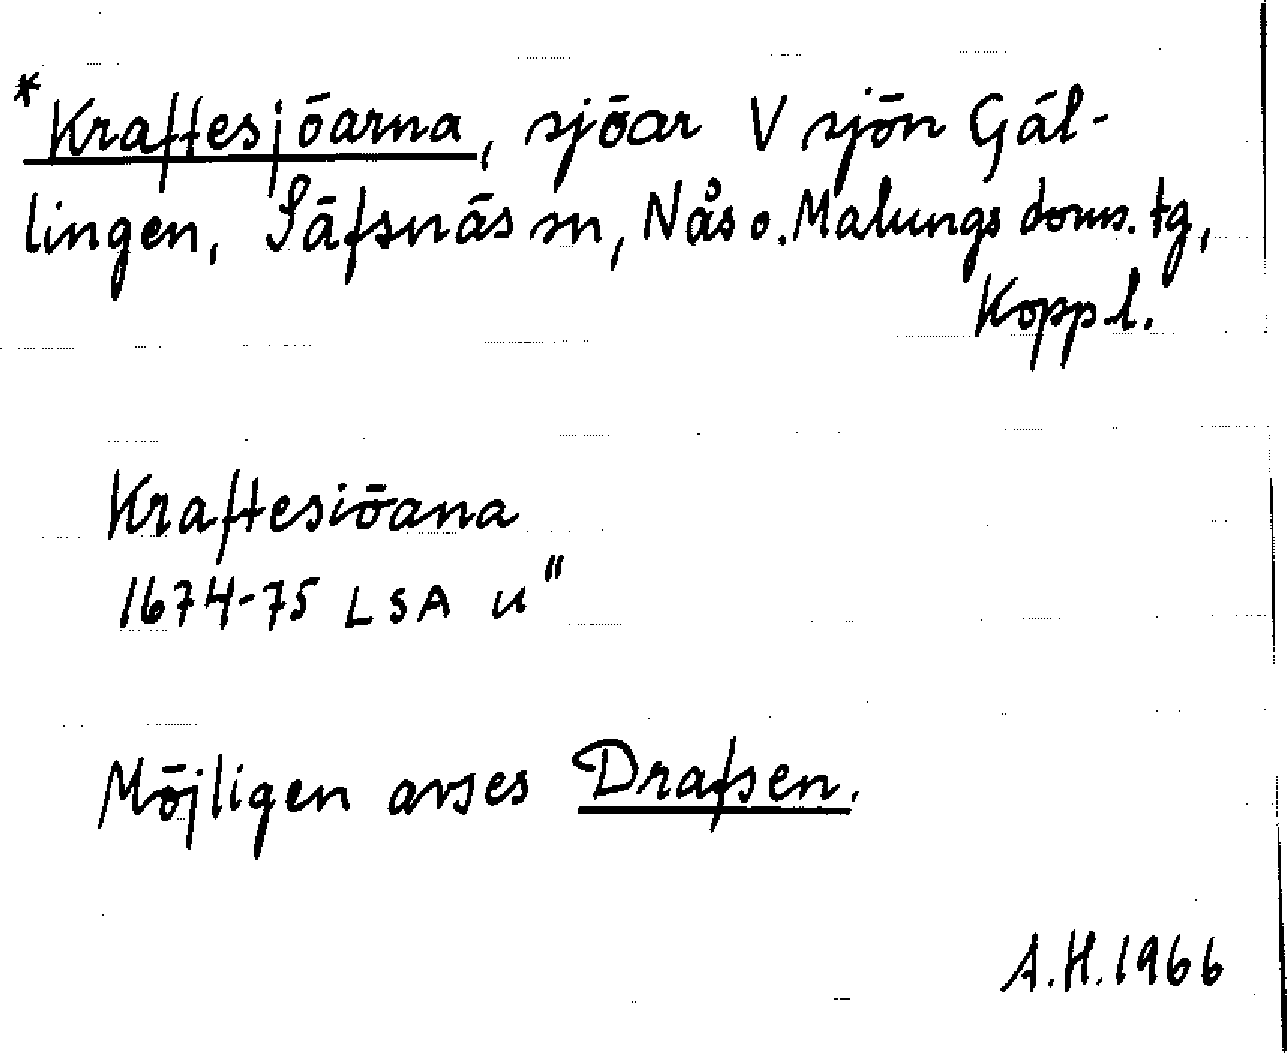 *Kraftesjöarna, sjöar V sjön Gäl-
lingen, Säfsnäs sn, Nås o. Malungs doms. tg,
Kopp.l.
Kraftesiöana
1674-75 LSA u"
Möjligen avses Drafsen.
A.H. 1966